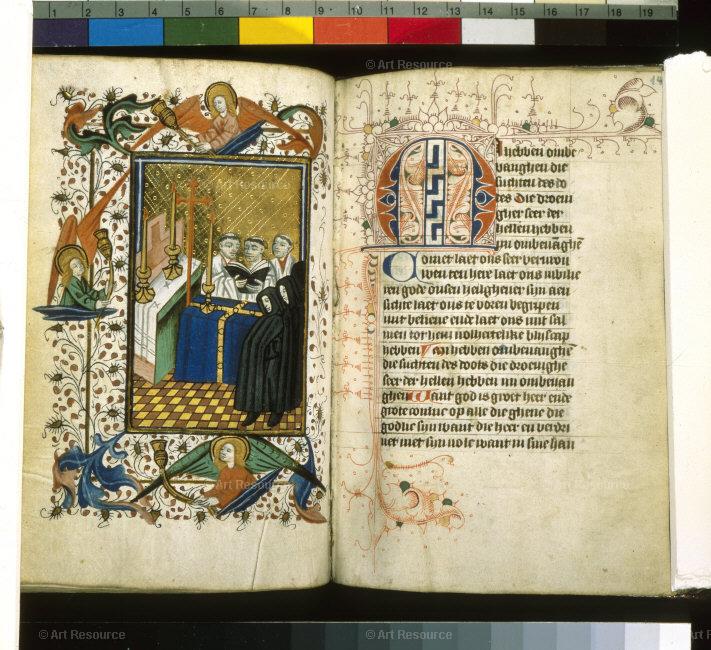 1 2 3 4 5 6 7 8 9 10 11 12 13 14 15 16 17 18 19
© Art Resource
14
Mi hebben ombe
vanghen die
suchten des do
des Die droeui
gher seer der
hellen hebben
mi ombeuāghē
Comet laet ons seer verurou
wen ten here laet ons iubilie
ren gode onsen sijn aen
sichte laet ons te voren begripen
mit beliene ende laet ons mit sal
men tot hem bliscap
hebben hebben ombeuanghē
die suchten des doots die droeuighe
seer der hellen hebben mi ombeuan
ghen Want god is groet heer ende
grote coninc op alle die ghene die
sijn want die heer en verdri
uet niet sijn uolc want in sine han
© Art Resource © Art Resource